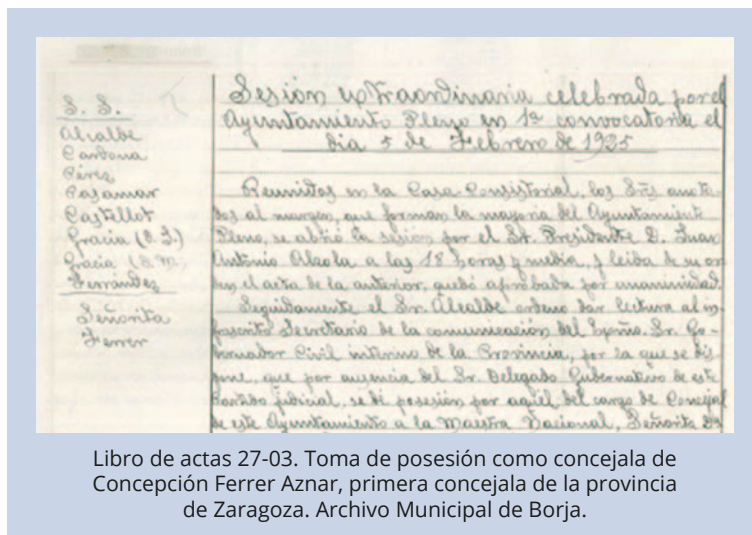 S. S.
Alcalde
Cardona
Pérez
Casamar
Castellot
Gracia (B. J.)
Gracia (B. M.)
Ferrández
Señorita
Ferrer
Sesión extraordinaria celebrada por el
Ayuntamiento Pleno en 1ª convocatoria el
dia 5 de Febrero de 1925
Reunidos en la Casa Consistorial, los Sres anota-
dos al margen, que forman la mayoria del Ayuntamiento
Pleno, se abrió la sesión por el Sr. Presidente D. Juan
Antonio a las 18 horas y media, y leida de su or-
den el acta de la anterior, quedó aprobada por unanimidad.
Seguidamente el Sr. Alcalde ordenó dar lectura al in-
frascrito Secretario de la comunicación del Excmo. Sr. Go-
bernador Civil interino de la Provincia, por la que se dis-
pone, que por ausencia del Sr. Delegado Gubernativo de este
Partido judicial, se dé posesión por aquél del cargo de Concejal
de este Ayuntamiento a la Maestra Nacional, Señorita Dª
Libro de actas 27-03. Toma de posesión como concejala de
Concepción Ferrer Aznar, primera concejala de la provincia
de Zaragoza. Archivo Municipal de Borja.